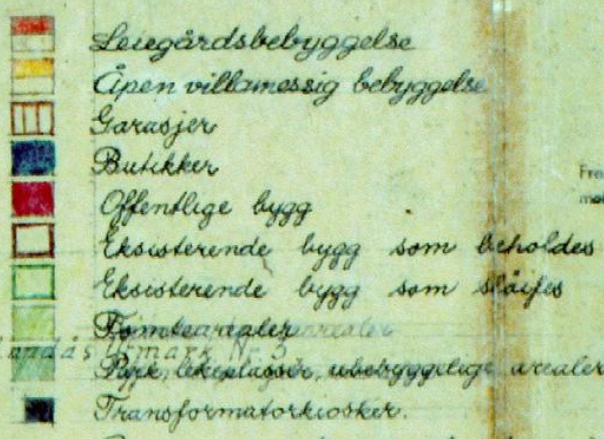 Leiegårdsbebyggelse
Åpen villamessig bebyggelse
Garasjer
Butikker
Offentlige bygg
Fre
Eksisterende bygg som beholdes
Eksisterende bygg som slöifes
Tomtearealer
Landås Utmark Nr. 3
Park, lekeplasser, ubebyggelige arealer
Transformatorkiosker.